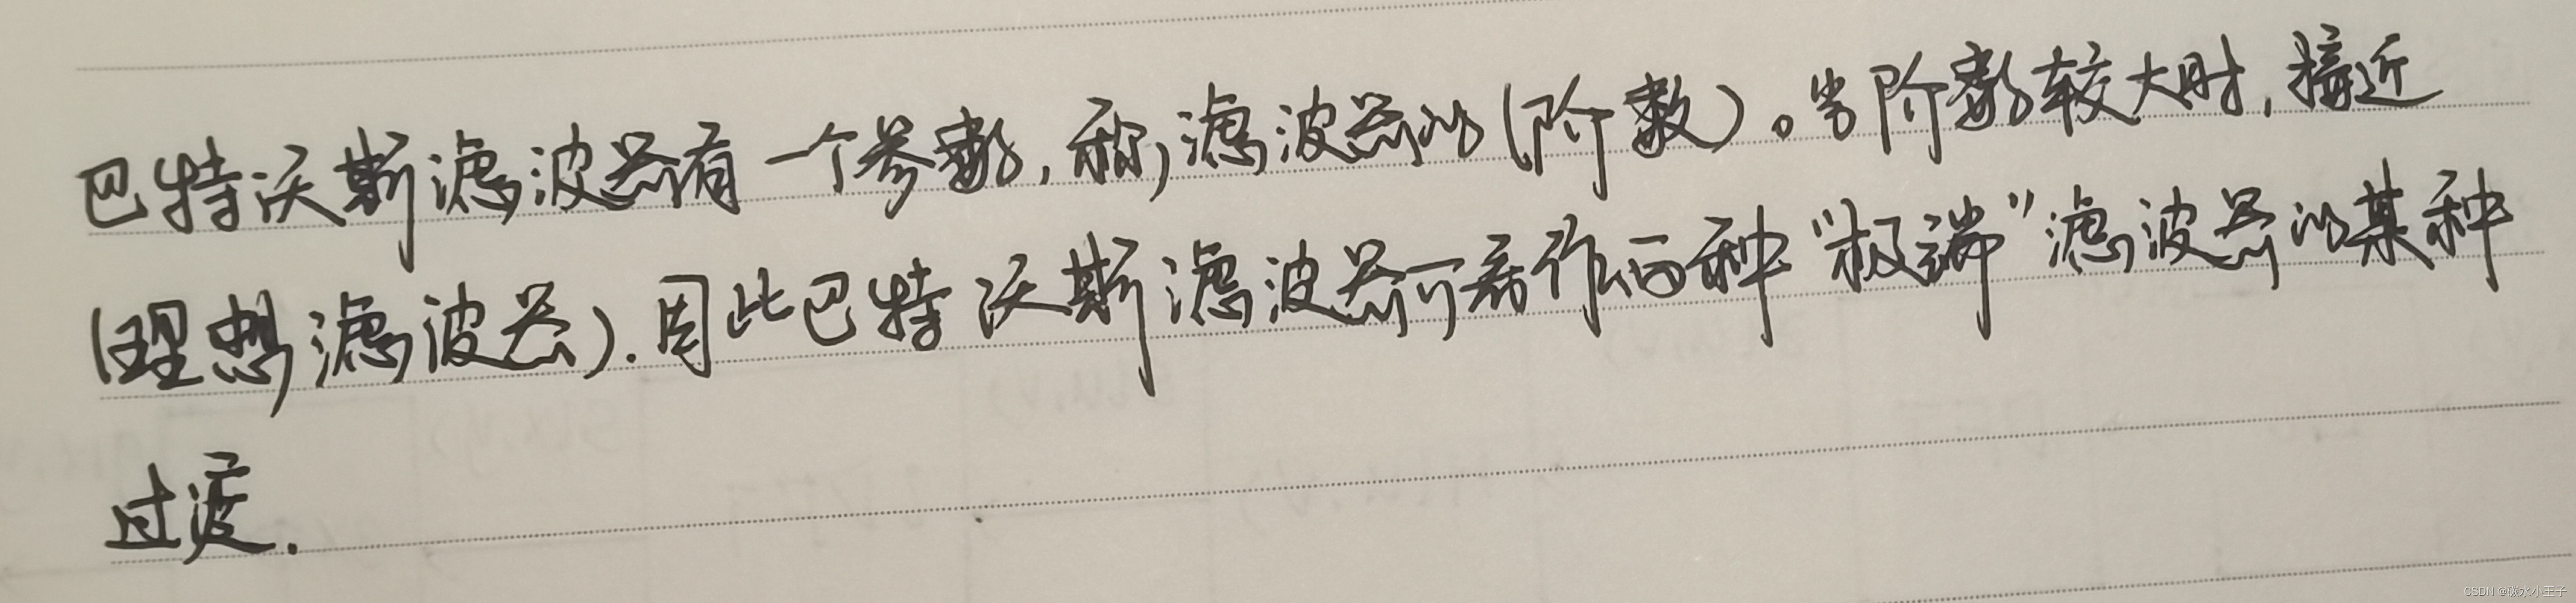 巴特沃斯滤波器有一个参数,称,滤波器的(阶数)。当阶数较大时,接近
(理想滤波器).因此巴特沃斯滤波器可看作两种“极端”滤波器的某种
过渡.
CSDN @碳水小王子